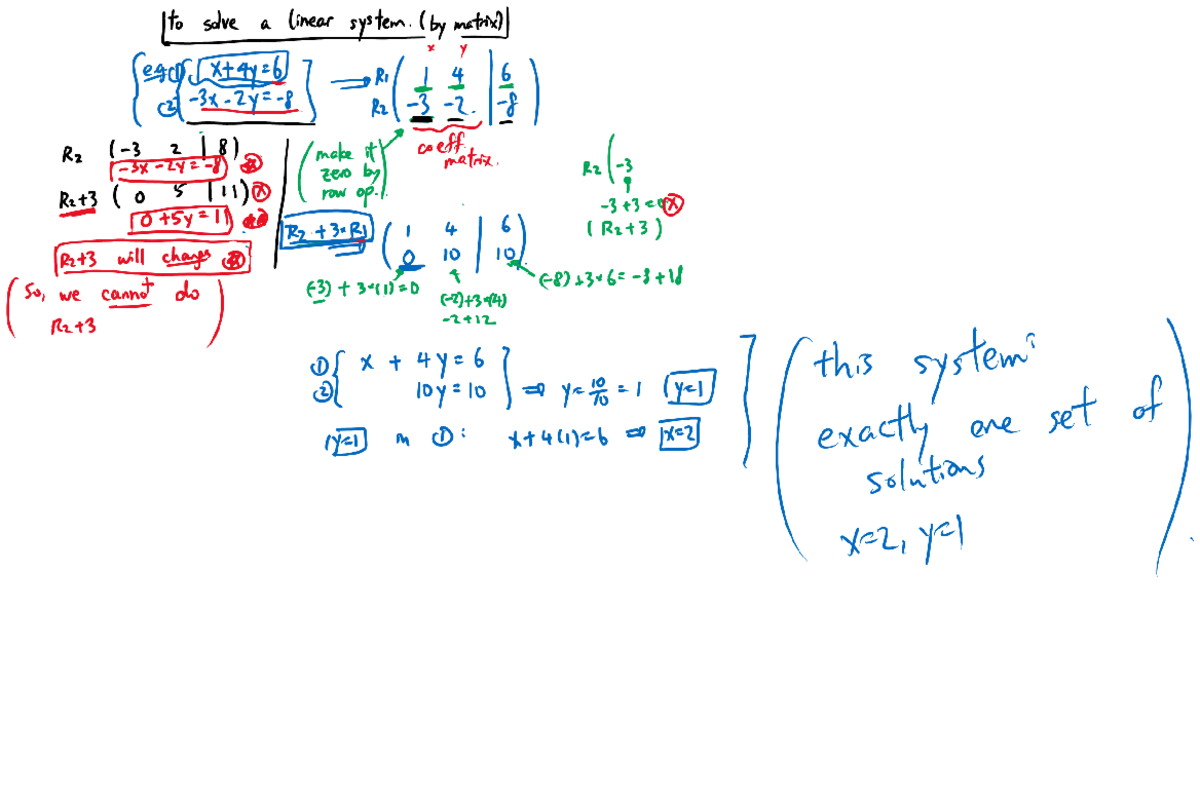 to solve a linear system. (by matrix)
x y
eg ① x+4y=6 ⟹ R1 ( 1 4 | 6 )
② -3x-2y=-8 R2 ( -3 -2 | -8 )
coeff. matrix.
(make it zero by row op.)
R2 (-3 2 | 8)
-3x-2y=-8
R2+3 ( 0 5 | 11) ⓧ
0+5y=11
R2+3 will change
(So, we cannot do
R2+3)
R2 (-3
-3+3=0 ⓧ
(R2+3)
R2+3·R1 ( 1 4 | 6 )
( 0 10 | 10 )
(-3)+3·(1)=0
(-2)+3·(4)
-2+12
(-8)+3·6=-8+18
① x + 4y = 6
② 10y = 10 ⟹ y = 10/10 = 1 y=1
y=1 in ①: x+4(1)=6 ⟹ x=2
this system:
exactly one set of
solutions
x=2, y=1